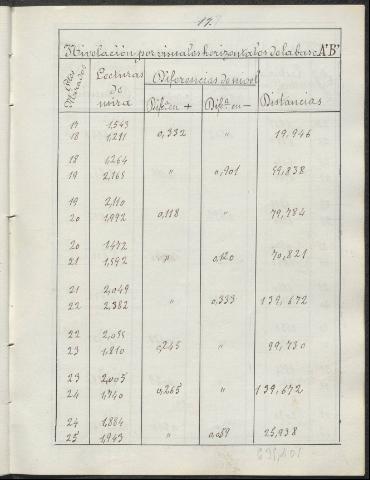 17
Nivelación por visuales horizontales de la base A'B'
Ptos Lecturas de mira Diferencias de nivel Distancias
Dif.ª en + Dif.ª en -
17 1,543
18 1,211 0,332 " 19,946
18 1,264
19 2,165 " 0,901 59,838
19 2,110
20 1,992 0,118 " 79,784
20 1,472
21 1,592 " 0,120 70,821
21 2,049
22 2,382 " 0,333 139,672
22 2,055
23 1,810 0,245 " 99,730
23 2,005
24 1,740 0,265 " 139,672
24 1,884
25 1,943 " 0,059 25,938